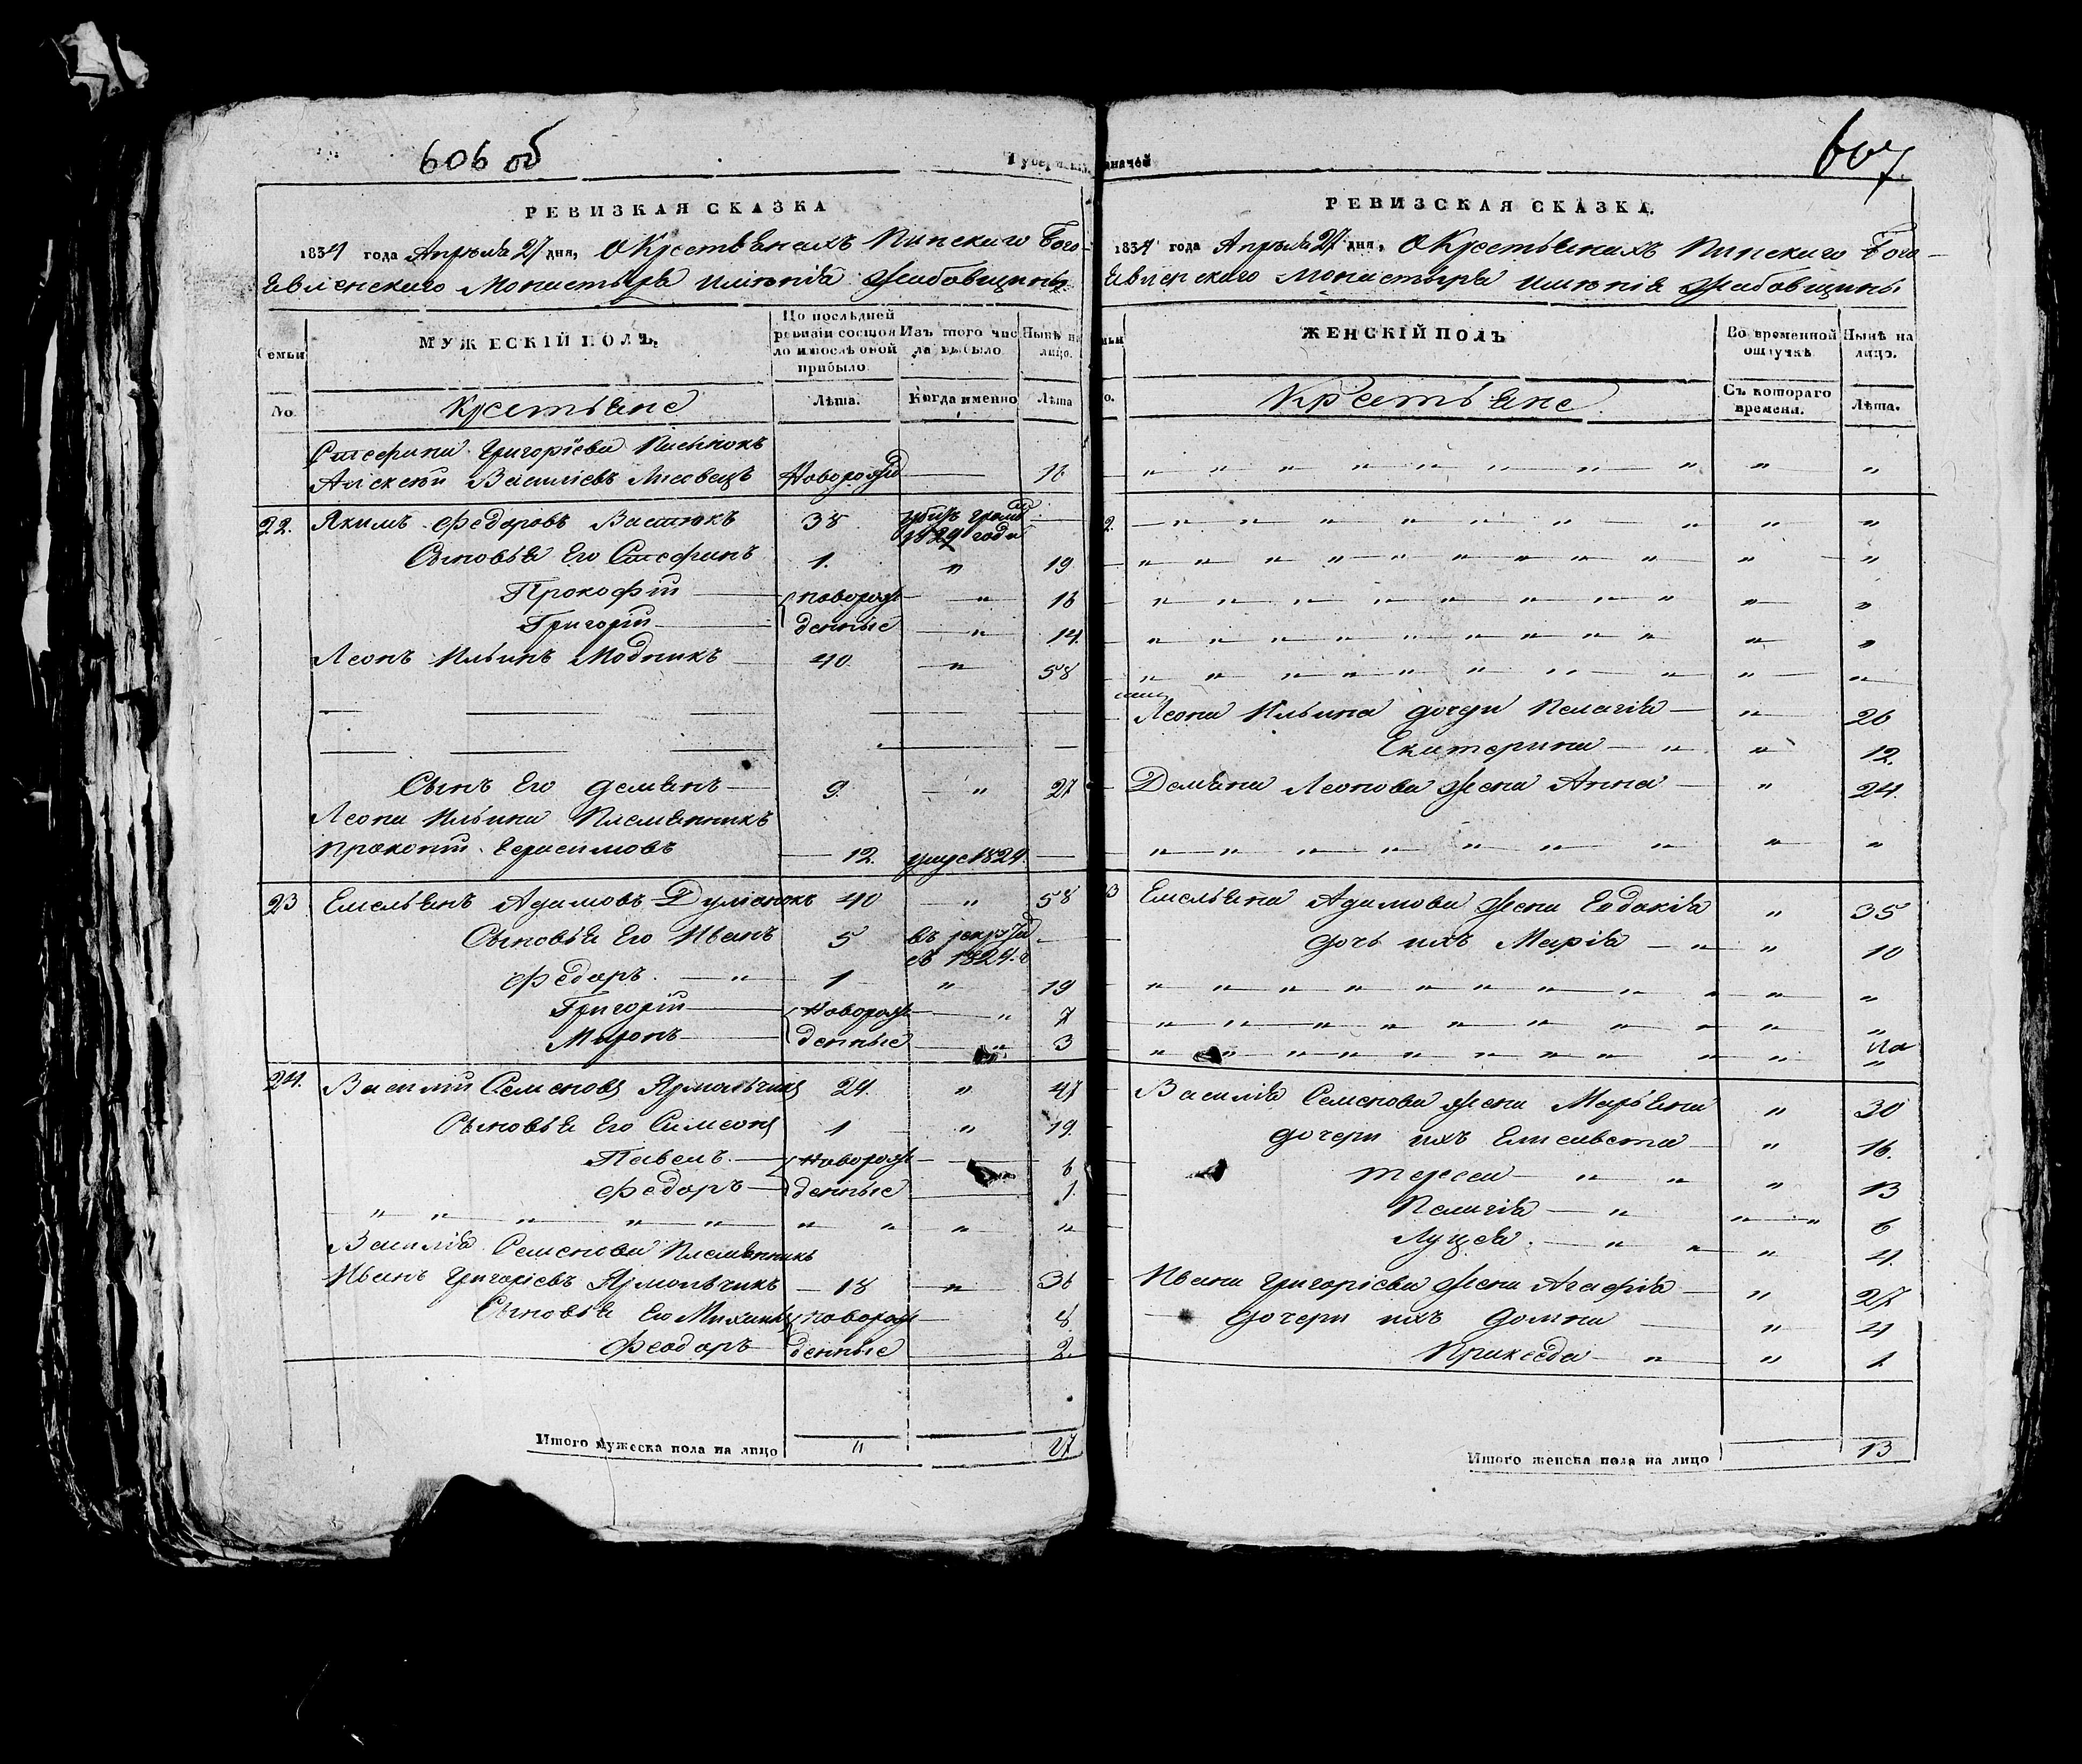 606 об
РЕВИЗКАЯ СКАЗКА
1834 года Апреля 27 дня, О Крестьянахъ Пинскаго Бого-
явленскаго Монастыря имѣнія Жабовщины
Семьи
МУЖЕСКІЙ ПОЛЪ.
По послѣдней ревизіи состояло и послѣ оной прибыло.
Изъ того числа выбыло.
Нынѣ на лицо.
No.
Крестьяне
Лѣта.
Когда именно
Лѣта
Стефана Григорьева
Алексей Васильевъ Новорожд 16
22. Якимъ Федоровъ Васюкъ 38 1829 года
Сыновья Его Стефанъ 1. " 19
Прокофій новорож " 16
Григорій денные " 14
Леонъ Ильинъ Модникъ 40 " 58
Сынъ Его Демянъ 9. " 27
Леона Ильина Племянникъ
Прокопій Герасимовъ 12. умре 1824.
23 Емельянъ Адамовъ 40 " 58
Сыновья Его Иванъ 5 въ рекру
съ 1824. г
Федоръ " 1 " 19
Григорій Новорож " 7
Миронъ денные " 3
24. Василій Семеновъ Ярмольчикъ 24. " 47
Сыновья Его Симеонъ 1 " 19.
Павелъ Новорож 6
Федоръ денные 1
" " " " " " " " "
Василія Семенова Племянникъ
Иванъ Григорьевъ Ярмольчикъ 18 " 36
Сыновья Его Михаилъ новорож 8
Феодоръ денные 2.
Итого мужеска пола на лицо " 27
607
РЕВИЗСКАЯ СКАЗКА.
1834 года Апреля 27 дня, О Крестьянахъ Пинскаго Бого-
явленскаго Монастыря имѣнія Жабовщины
ЖЕНСКІЙ ПОЛЪ
Во временной отлучкѣ
Нынѣ на лицо.
Крестьяне.
Съ котораго времени.
Лѣта.
Леона Ильина дочери Пелагія " 26
Екатерина " " 12.
Демяна Леонова жена Анна " 24.
Емельяна Адамова жена Евдокія " 35
дочь ихъ Марія " " 10
Василія Семенова жена Марьяна " 30
дочери ихъ Елисавета " 16.
Тереса " " " 13
Пелагія " " " 6
Луцея " " " 4.
Ивана Григорьева жена Агафія " 27
дочери ихъ Домна " 4
" " 1.
Итого женска пола на лицо 13